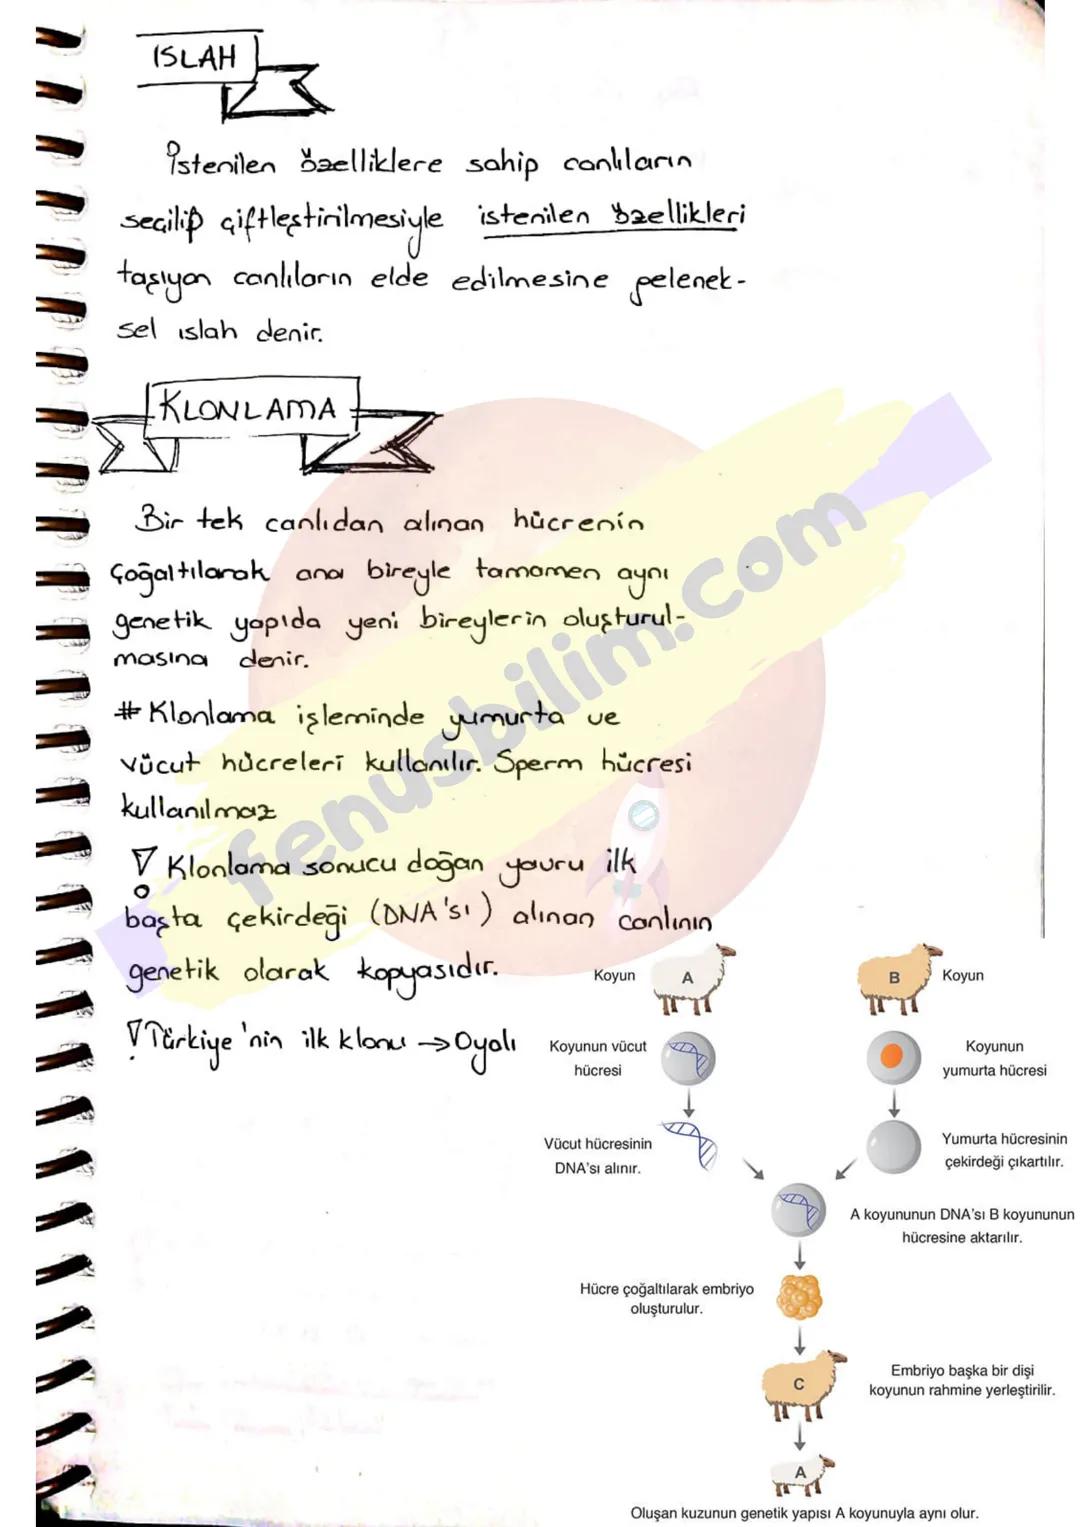 ISLAH
İstenilen özelliklere sahip canlıların
seçilip çiftleştirilmesiyle istenilen özellikleri
taşıyan canlıların elde edilmesine gelenek-
sel ıslah denir.
KLONLAMA
Bir tek canlıdan alınan hücrenin
çoğaltılarak ana bireyle tamamen aynı
genetik yapıda yeni bireylerin oluşturul-
masına denir.
# Klonlama işleminde yumurta ve
vücut hücreleri kullanılır. Sperm hücresi
kullanılmaz
! Klonlama sonucu doğan yavru ilk
başta çekirdeği (DNA'sı) alınan canlının
genetik olarak kopyasıdır.
! Türkiye'nin ilk klonu → Oyalı
fenusbilim.com
Koyun
A
B
Koyun
Koyunun vücut
hücresi
Koyunun
yumurta hücresi
Vücut hücresinin
DNA'sı alınır.
Yumurta hücresinin
çekirdeği çıkartılır.
A koyununun DNA'sı B koyununun
hücresine aktarılır.
Hücre çoğaltılarak embriyo
oluşturulur.
C
Embriyo başka bir dişi
koyunun rahmine yerleştirilir.
A
Oluşan kuzunun genetik yapısı A koyunuyla aynı olur.